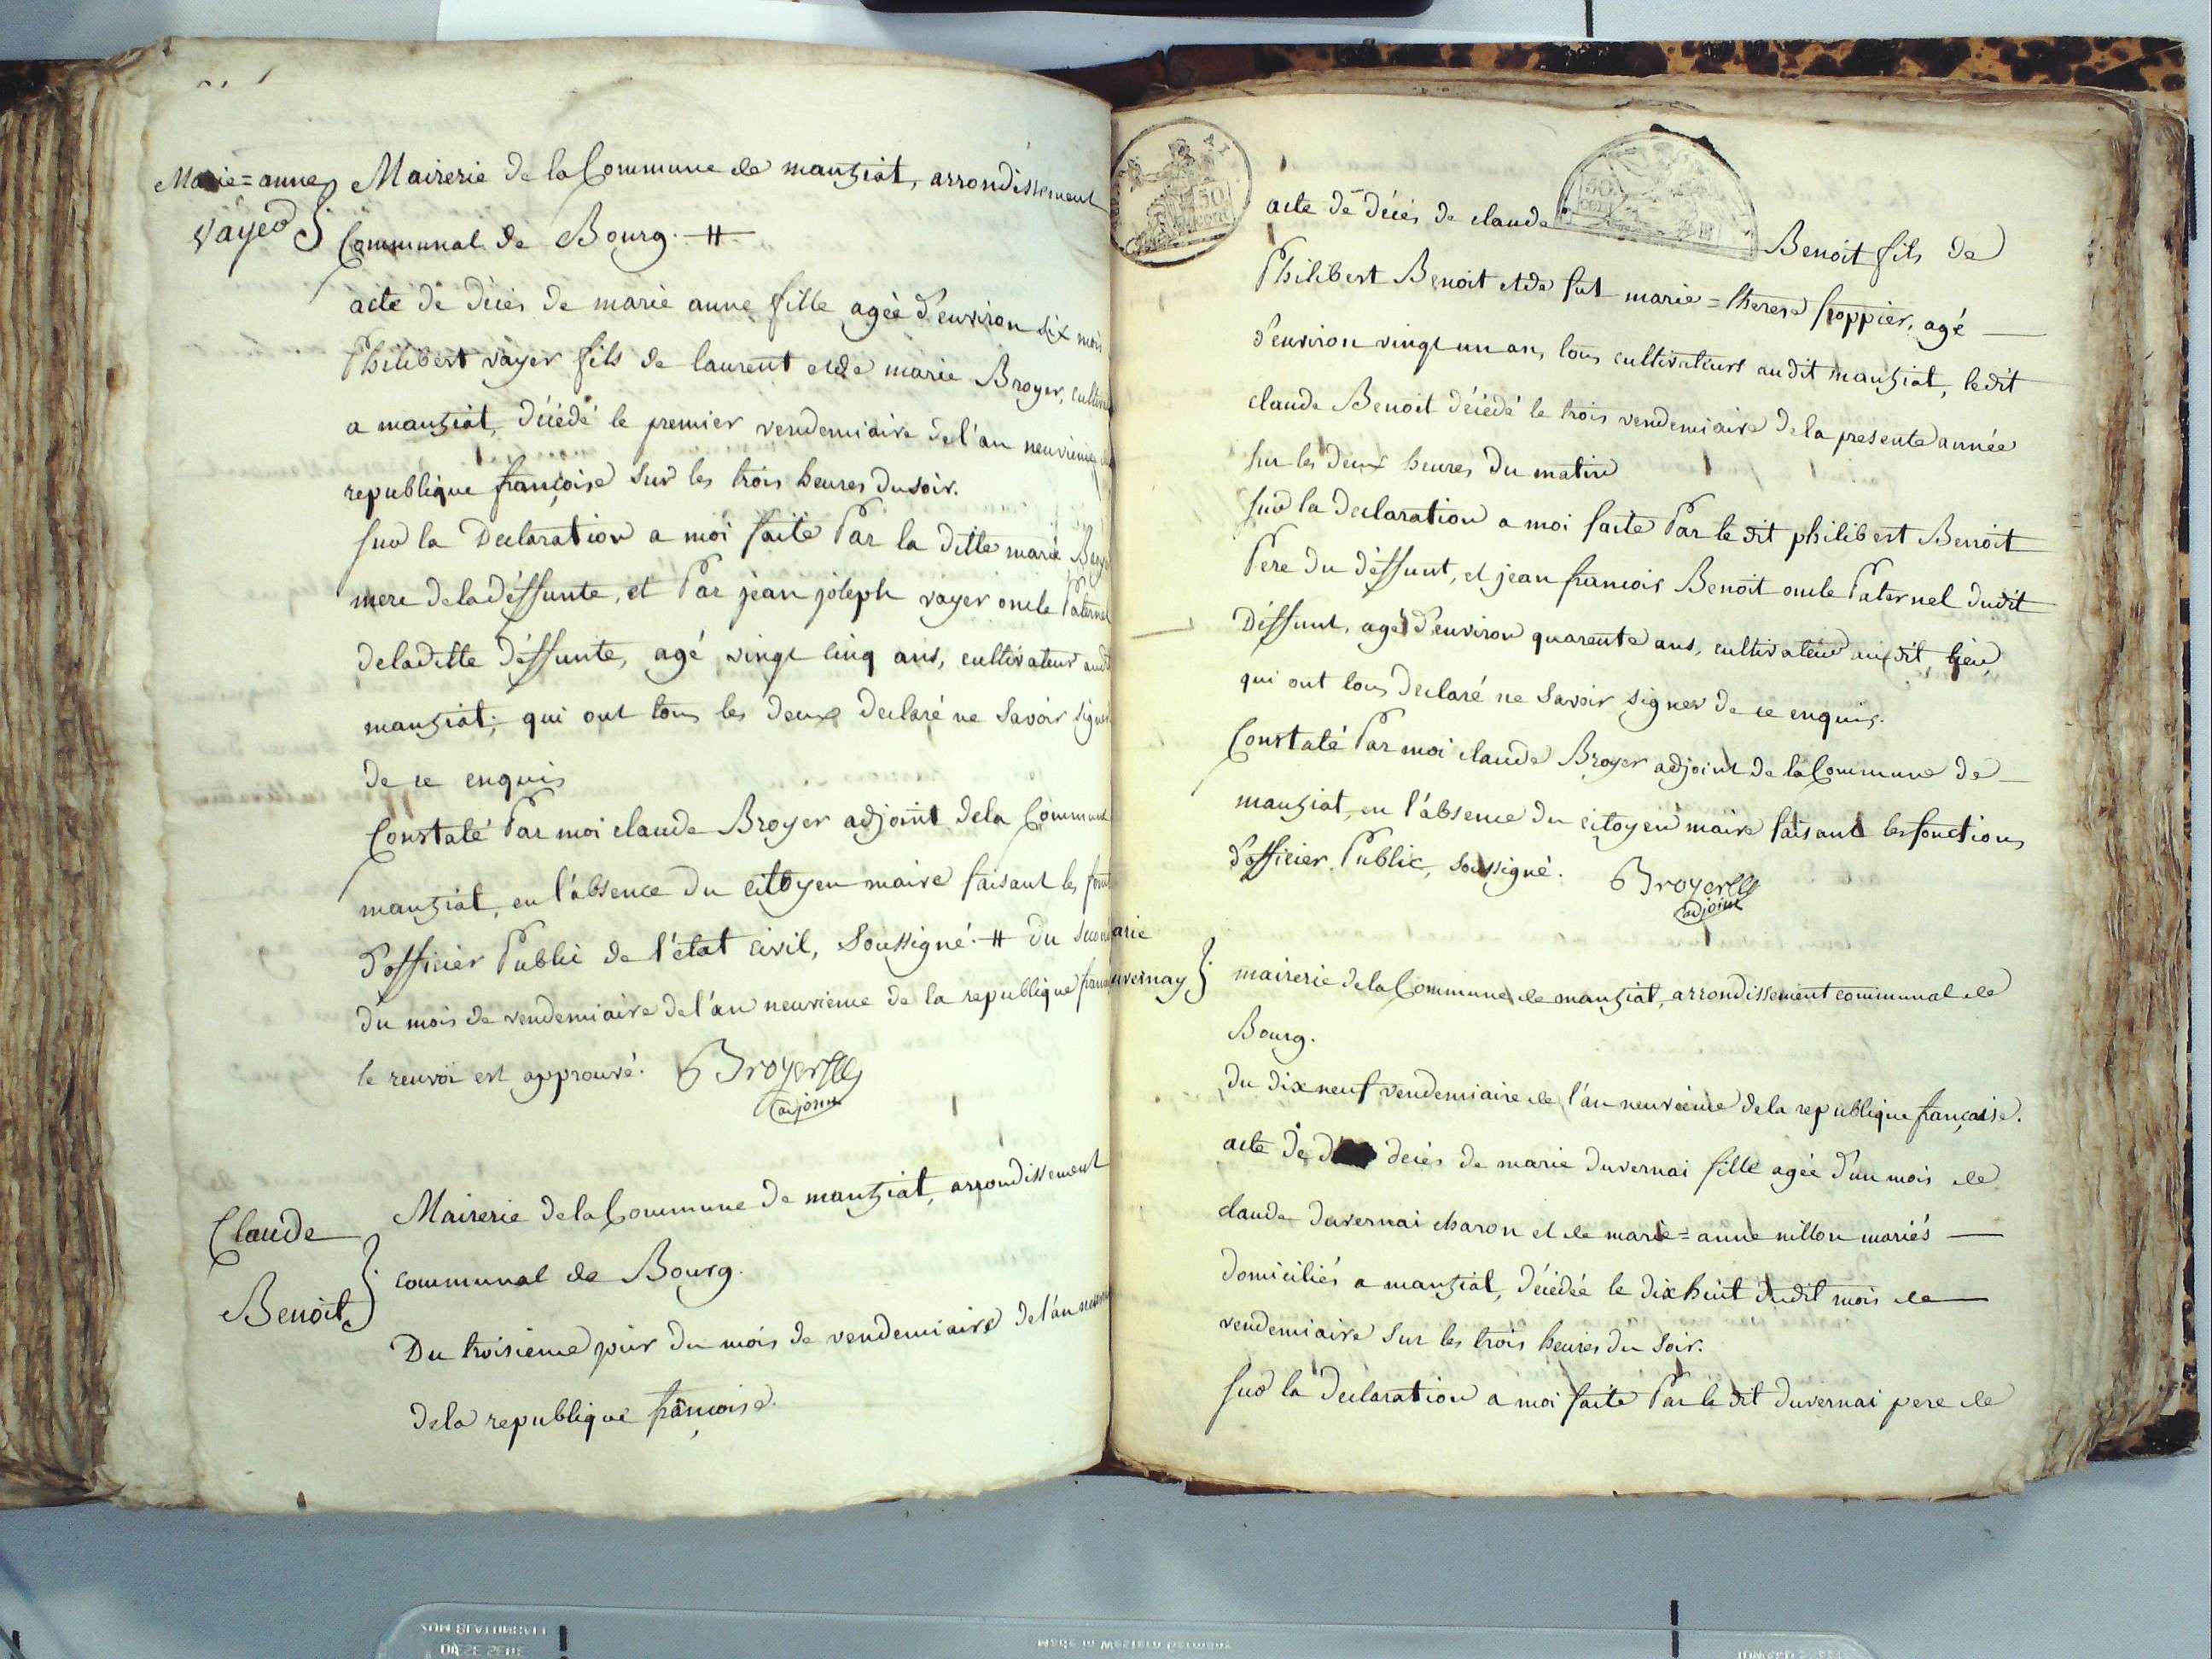 Marie=anne
vayer
Mairerie de la Commune de manziat, arrondissement
Communal de Bourg. #
acte de décés de marie anne fille agée d'environ six mois
Philibert vayer fils de laurent et de marie Broyer, cultiv
a manziat, décédé le premier vendemiaire de l'an neuvieme
republique françoise sur les trois heures du soir.
sur la Declaration a moi faite Par la ditte marie
mere de la déffunte, et Par jean joseph vayer oncle Paternel
de la ditte déffunte, agé vingt cinq ans, cultivateur audit
manziat, qui ont tous les deux declaré ne savoir signer
de ce enquis
Constaté Par moi claude Broyer adjoint de la Commune
manziat, en l'absence du citoyen maire faisant les fonct
d'officier Public de l'état civil, soussigné. # du second
du mois de vendemiaire de l'an neuvieme de la republique
le renvoi est approuvé. Broyer
adjoint
Claude
Benoit
Mairerie de la Commune de manziat, arrondissement
communal de Bourg.
Du troisieme jour du mois de vendemiaire de l'an
de la republique françoise.
50 cent
50 cent
acte de décés de claude Benoit fils de
Philibert Benoit et de fut marie=therese froppier, agé
d'environ vingt un an, tous cultivateurs audit manziat, ledit
claude Benoit décédé le trois vendemiaire de la presente année
sur les deux heures du matin
sur la declaration a moi faite Par le dit philibert Benoit
Pere du déffunt, et jean francois Benoit oncle Paternel dudit
Déffunt, agé d'environ quarente ans, cultivateur audit lieu,
qui ont tous declaré ne savoir signer de ce enquis.
Constaté Par moi claude Broyer adjoint de la Commune de
manziat, en l'absence du citoyen maire faisant les fonctions
d'officier Public, soussigné. Broyer
adjoint
arie
uvernay
mairerie de la Commune de manziat, arrondissement communal de
Bourg.
Du dix neuf vendemiaire de l'an neuvieme de la republique française.
acte de decés de marie duvernai fille agée d'un mois de
claude duvernai charon et de marie=anne nillon mariés
domiciliés a manziat, décédée le dix huit dudit mois de
vendemiaire sur les trois heures du soir.
sur la declaration a moi faite Par le dit duvernai pere de